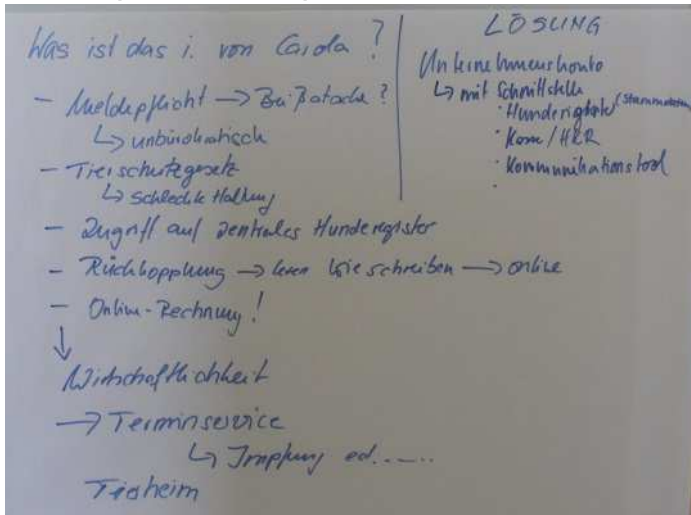 Was ist das i. von Carola?
- Meldepflicht → Beißattacke?
↳ unbürokratisch
- Tierschutzgesetz
↳ schlechte Haltung
- Zugriff auf zentrales Hunderegister
- Rückkopplung → keine Briefe schreiben → online
- Online-Rechnung!
↓
Wirtschaftlichkeit
→ Terminservice
↳ Impfung od......
Tierheim
LÖSUNG
Unternehmenskonto
↳ mit Schnittstelle
· Hunderegister (Stammdaten)
· Kom/HKR
· Kommunikationstool